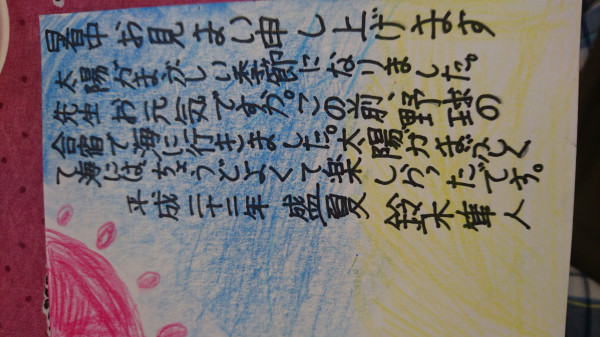 暑中お見まい申し上げます
太陽がまぶしい季節になりました。
先生お元気ですか。この前、野球の
合宿で海に行きました。太陽がまぶしく
て海には、ちょうどよくて楽しかったです。
平成二十二年 盛夏 鈴木隼人